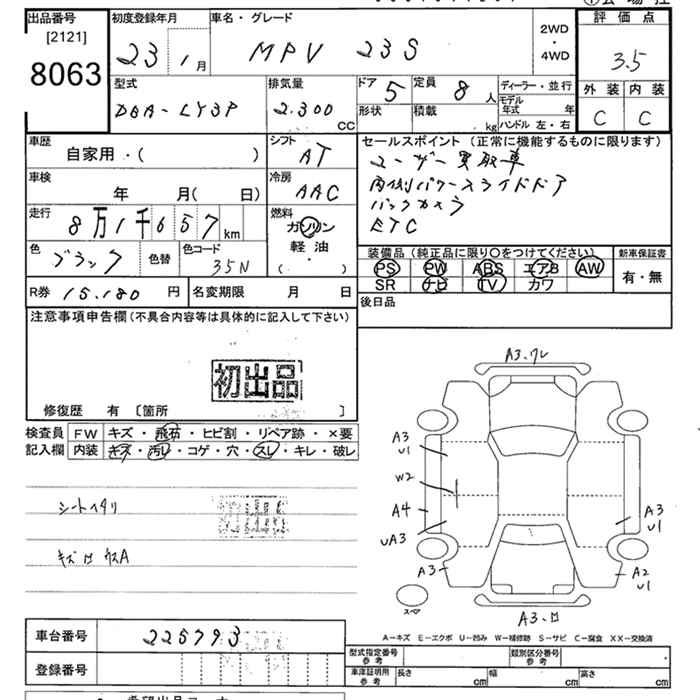 出品番号 初度登録年月 車名・グレード 2WD 評価点
[2121] 23 1月 MPV 23S ・ 3.5
8063 4WD
型式 排気量 ドア 5 定員 8人 ディーラー・並行 外装 内装
DBA-LY3P 2.300 CC 形状 積載 kg モデル年式 年 C C
ハンドル 左・右
車歴 自家用・( ) シフト AT セールスポイント(正常に機能するものに限ります)
ユーザー買取車
車検 年 月( 日) 冷房 AAC 両側パワースライドドア
バックカメラ
走行 8万1千657km 燃料 ガソリン ETC
軽油
・
( )
色 ブラック 色替 色コード 35N 装備品(純正品に限り○をつけてください) 新車保証書
PS PW ABS エアB AW 有・無
R券 15.180 円 名変期限 月 日 SR ナビ TV カワ
注意事項申告欄(不具合内容等は具体的に記入して下さい) 後日品
初出品
修復歴 有 [箇所 ]
検査員 FW キズ・飛石・ヒビ割・リペア跡・×要
記入欄 内装 キズ・汚レ・コゲ・穴・スレ・キレ・破レ
シートヘタリ
初出品
キズ
A3.ワレ
A3
U1
W2
A4
UA3
A3
A3
U1
A2
U1
スペア
A3.ロ
A-キズ E-エクボ U-凹み W-補修跡 S-サビ C-腐食 XX-交換済
車台番号 225793 型式指定番号 参考 類別区分番号 参考
登録番号 車庫証明用 参考 長さ cm 幅 cm 高さ cm